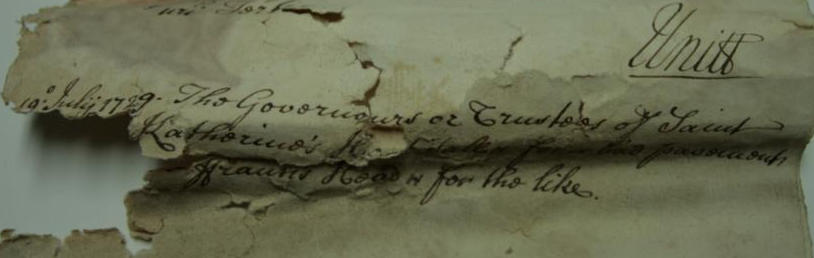 Unitt
19º July 1729. The Governours or Trustees of Saint
Katherine's for the pavement
ffrancis for the like.